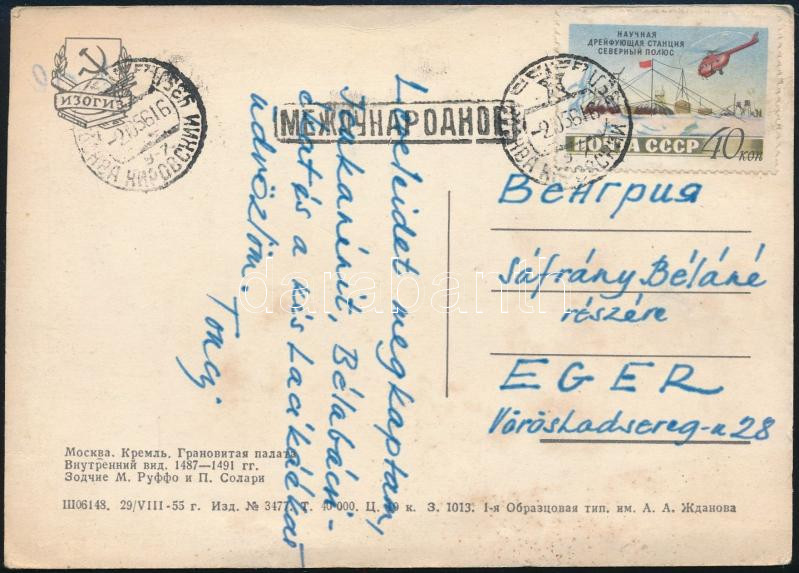 ИЗОГИЗ
НАУЧНАЯ
ДРЕЙФУЮЩАЯ СТАНЦИЯ
СЕВЕРНЫЙ ПОЛЮС
ПОЧТА СССР 40 КОП
МЕЖДУНАРОДНОЕ
Венгрия
Sáfrány Béláné
részére
EGER
Vöröshadsereg-u 28
megkaptam,
és a kis
üdvözlöm.
Tonej
darabanth
Москва. Кремль. Грановитая палата
Внутренний вид. 1487—1491 гг.
Зодчие М. Руффо и П. Солари
Ш06148. 29/VIII-55 г. Изд. № 3477. Т. 40 000. Ц. к. З. 1013. 1-я Образцовая тип. им. А. А. Жданова